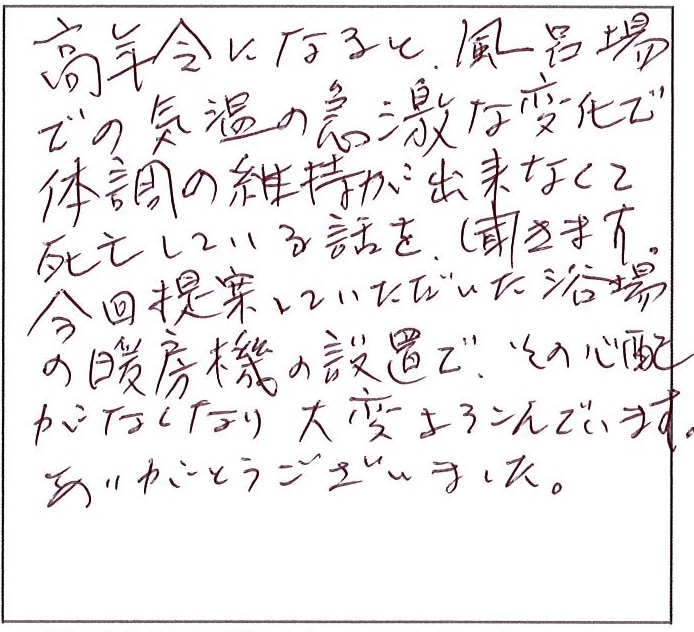 高年令になると、風呂場
での気温の急激な変化で
体調の維持が出来なくて
死亡している話を、聞きます。
今回提案していただいた浴場
の暖房機の設置で、その心配
がなくなり大変よろこんでいます。
ありがとうございました。